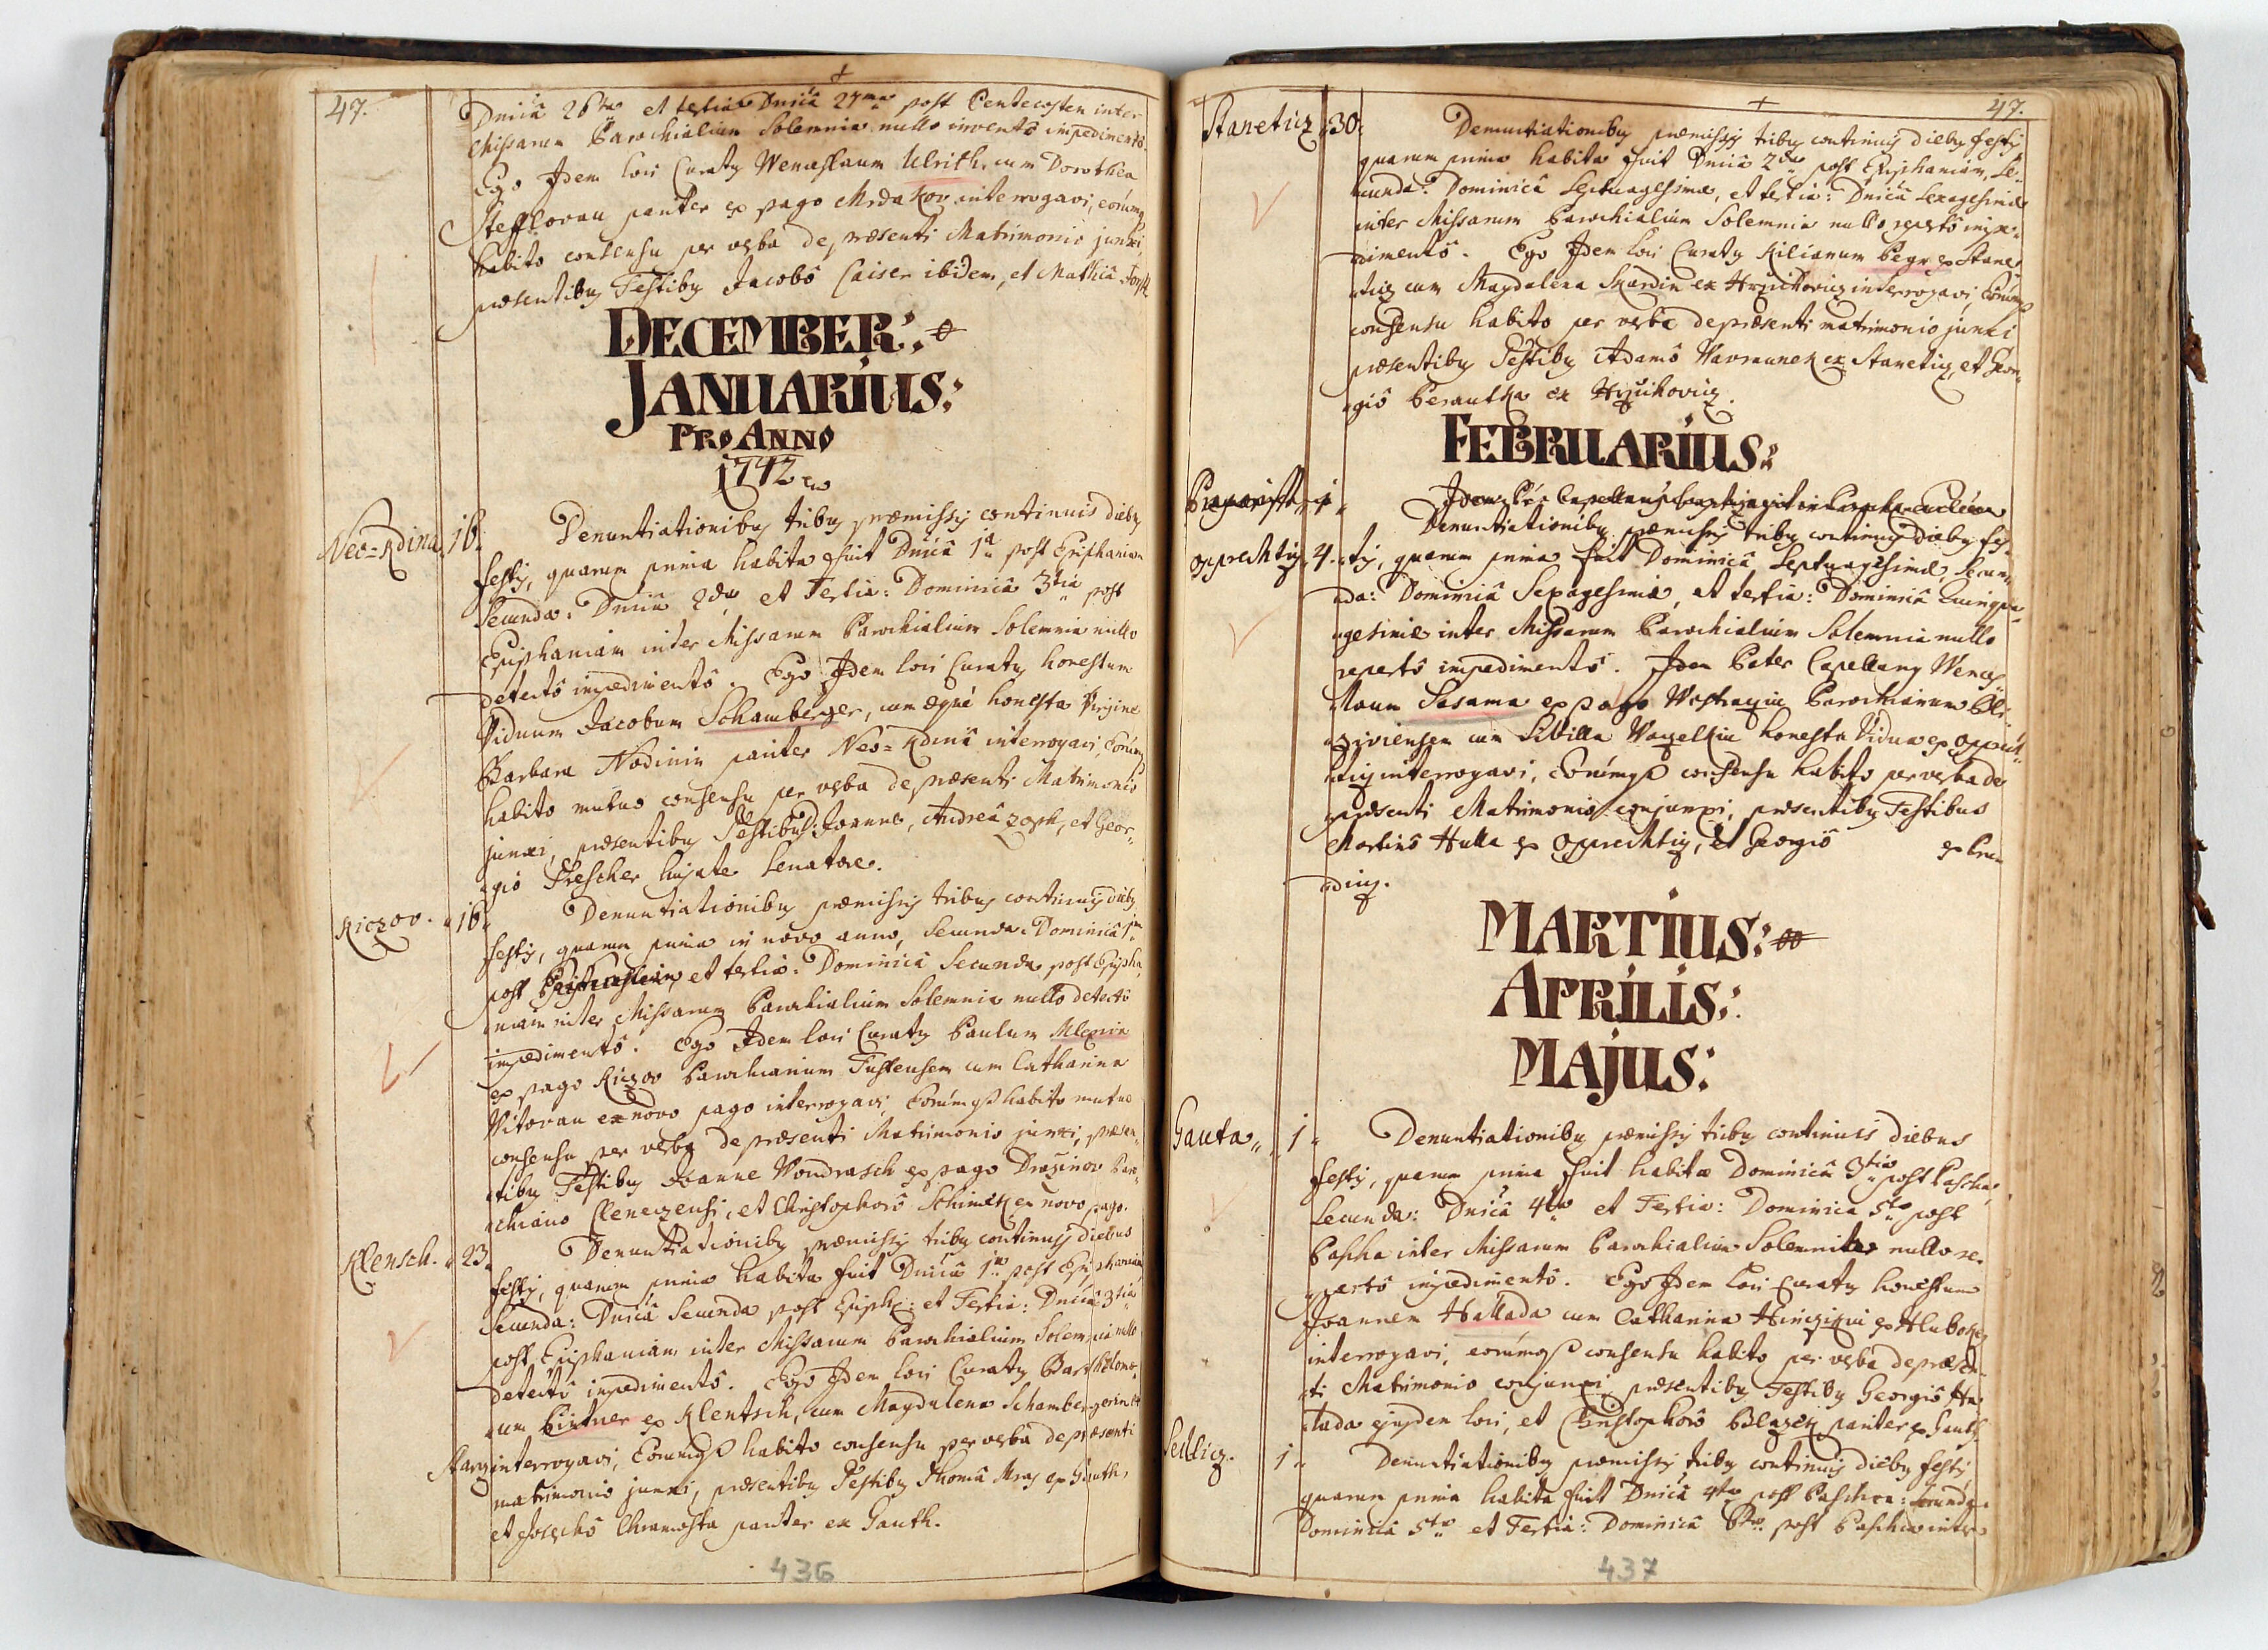 47.
Dnicâ 26ta et tertia Dnicâ 27ma post Pentecosten inter
Missarum Parochialium Solemnia nullo inventô impedimentô.
Ego Idem loci Curatq Wenceslaum Ulrich, cum Dorothea
Stefflovau pariter ex pago Mrdakov interrogavi, eorumq
habito consensu per verba de præsenti Matrimonio junxi
præsentibq Testibq Jacobô Caiser ibidem, et Mathiâ
DECEMBER:
JANUARIUS:
PRO ANNO
1742
Neo=Kdina 16.
Denuntiationibq tribq præmissis continuis diebq
festis, quarum prima habita fuit Dnicâ 1a post Epiphaniam
Secunda: Dnicâ 2da et Tertia: Dominicâ 3tia post
Epiphaniam inter Missarum Parochialium Solemnia nullo
detectô impedimentô. Ego Idem loci Curatq honestum
Viduum Jacobum Schamberger, cum æquè honesta Virgine
Barbara Nodinin pariter Neo=Kdinâ interrogavi, Eorumq
habito mutuo consensu per verba de præsenti Matrimonio
junxi, præsentibq Testibus: Joanne, Andreâ Zoph, et Geor„
„giô Trescher hujate Senatore.
Kiczov. „16„
Denuntiationibq præmissis tribus continuis diebq
festis, quarum prima in novo anno, Secunda: Dominicâ 1ma
post et tertia: Dominicâ Secunda post Epipha„
niam inter Missarum Parochialium Solemnia nullo detectô
impedimentô. Ego Idem loci Curatq Paulum
ex pago Kiczov Parochianum Tustensem cum Catharina
Vitovau ex novo pago interrogavi, Eorumq habito mutuo
consensu per verba de præsenti Matrimonio junxi, præsen„
„tibq Testibq Joanne Wondrasch ex pago Drazinov Paro„
„chiano Clenczensi, et Christophorô Schimek ex novo pago.
Klensch. „23„
Denuntiationibq præmissis tribq continuis diebus
festis, quarum prima habita fuit Dnicâ 1ma post Epiphaniam,
Secunda: Dnicâ Secunda post Epiph: et Tertia: Dnicâ 3tia
post Epiphaniam inter Missarum Parochialium Solemnia nullo
detectô impedimentô. Ego Idem loci Curatq Bartholomæ„
„um Pintner ex Klentsch, cum Magdalena Schambergerin ex
interrogavi, Eorumq habito consensu per verba de præsenti
matrimonio junxi, præsentibq Testibq Thomâ Mraz ex Gauth,
et Josephô Chramosta pariter ex Gauth.
436
47.
Staneticz „30„
Denuntiationibq præmissis tribq continuis diebq festis
quarum prima habita fuit Dnicâ 2da post Epiphaniam, Se„
„cunda: Dominicâ Septuagesimæ, et tertia: Dnicâ Sexagesimæ
inter Missarum Parochialium Solemnia nullo repertô impe„
„dimentô. Ego Idem loci Curatq Kilianum Pegr ex Stane„
„ticz cum Magdalena Skardin ex Hrzichovicz interrogavi, Eorumq
consensu habito per verba de præsenti matrimonio junxi
præsentibq Testibq Adamô Wavraunek ex Staneticz, et Geor„
„giô Berautka ex Hrzichovicz.
FEBRUARIUS:
Opprechticz „4„
Denuntiationibq præmissis tribq continuis diebq fes„
„tis, quarum prima fuit Dominicâ Septuagesimæ, Secun„
„da: Dominicâ Sexagesimæ, et tertia: Dominicâ Quinqua„
„gesimæ inter Missarum Parochialium Solemnia nullo
repertô impedimentô. Idem Pater Capellanq Wences„
„laum Sasama ex pago Parochianum Bli„
„ziviensem cum Sibilla honesta Vidua ex Opprech„
„ticz interrogavi, Eorumq consensu habito per verba de
præsenti Matrimonio conjunxi, præsentibq Testibus
Martinô Hulla ex Opprechticz, et Georgiô ex
„dicz.
MARTIUS:
APRILIS:
MAJUS:
Gauta „ 1„
Denuntiationibq præmissis tribq continuis diebus
festis, quarum prima fuit habita Dominicâ 3tia post Pascha,
Secunda: Dnicâ 4ta et Tertia: Dominicâ 5ta post
Pascha inter Missarum Parochialium Solemnia nullo re„
„pertô impedimentô. Ego Idem loci Curatq honestum
Joannem Hallada cum Catharina ex Hluboky
interrogavi, eorumq consensu habito per verba de præsen„
„ti Matrimonio conjunxi præsentibq Testibq Georgiô Ha„
„lada ejusdem loci, et Christophorô Blazek pariter ex Gauth.
Sedlicz. 1„
Denuntiationibq præmissis tribq continuis diebq festis
quarum prima habita fuit Dnicâ 4ta post Pascha: Secunda
Dominicâ 5ta et Tertia: Dominicâ 6ta post Pascha inter
437